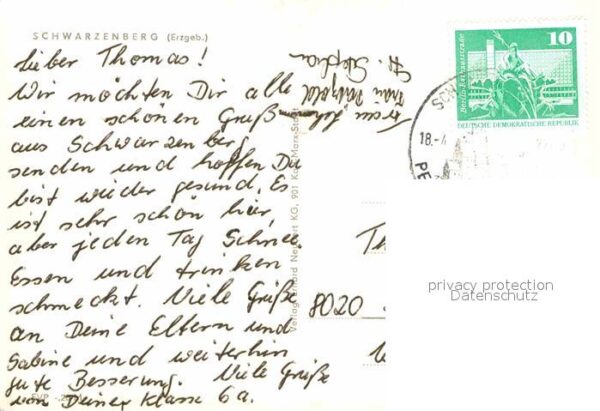 SCHWARZENBERG (Erzgeb.)
Lieber Thomas!
Wir möchten Dir alle
einen schönen Gruß
aus Schwarzenberg
senden und hoffen Du
bist wieder gesund. Es
ist sehr schön hier,
aber jeden Tag Schnee.
Essen und trinken
schmeckt. Viele Grüße
an Deine Eltern und
Sabine und weiterhin
gute Besserung. Viele Grüße
von Deiner Klasse 6a.
Frau
Frau
Verlag Erhard Neubert KG, 901 Karl-Marx-Stadt
10
DEUTSCHE DEMOKRATISCHE REPUBLIK
18.-4
Th
8020
privacy protection
Datenschutz